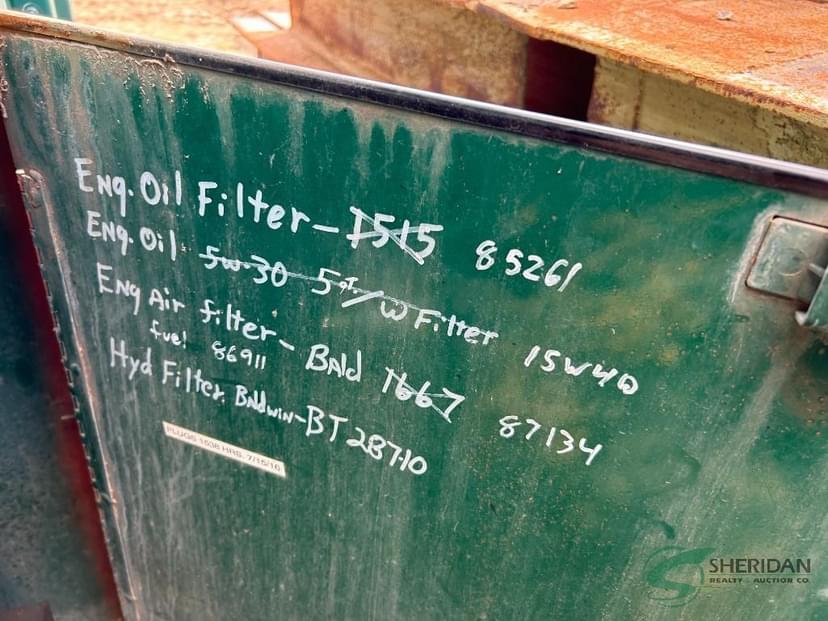 Eng. Oil Filter - 1515 85261
Eng. Oil 5w-30 5qt. / W Filter 15W40
Eng Air filter - Bald 1667 87134
fuel 86911
Hyd Filter Baldwin - BT287-10
PLUGS 1538 HRS. 7/15/16
SHERIDAN
REALTY & AUCTION CO.